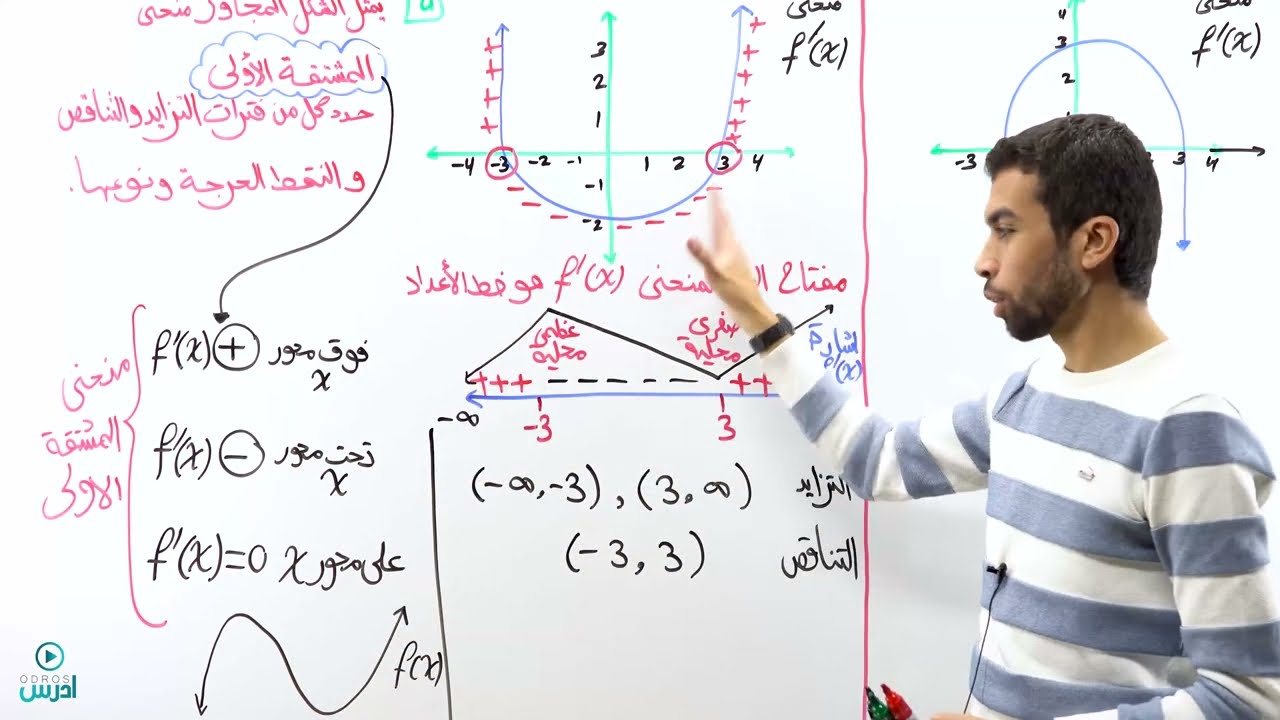 a
يمثل الشكل المجاور منحنى
المشتقة الأولى
حدد كل من فترات التزايد والتناقص
والنقط الحرجة ونوعها.
منحنى
المشتقة
الاولى
f'(x) + فوق محور x
f'(x) - تحت محور x
f'(x)=0 على محور x
f(x)
منحنى
f'(x)
3
2
1
-4 -3 -2 -1 1 2 3 4
-1
-2
+ + + +
+ + + + +
- - - - - - - -
مفتاح
لمنحنى f'(x) هو خط الأعداد
عظمى
محلية
صغرى
محلية
اشارة
f'(x)
+++ - - - - - - ++
-∞ -3 3
التزايد (-∞,-3) , (3,∞)
التناقص (-3, 3)
منحنى
f'(x)
4
3
2
1
-3 3 4
ODROS
ادرس